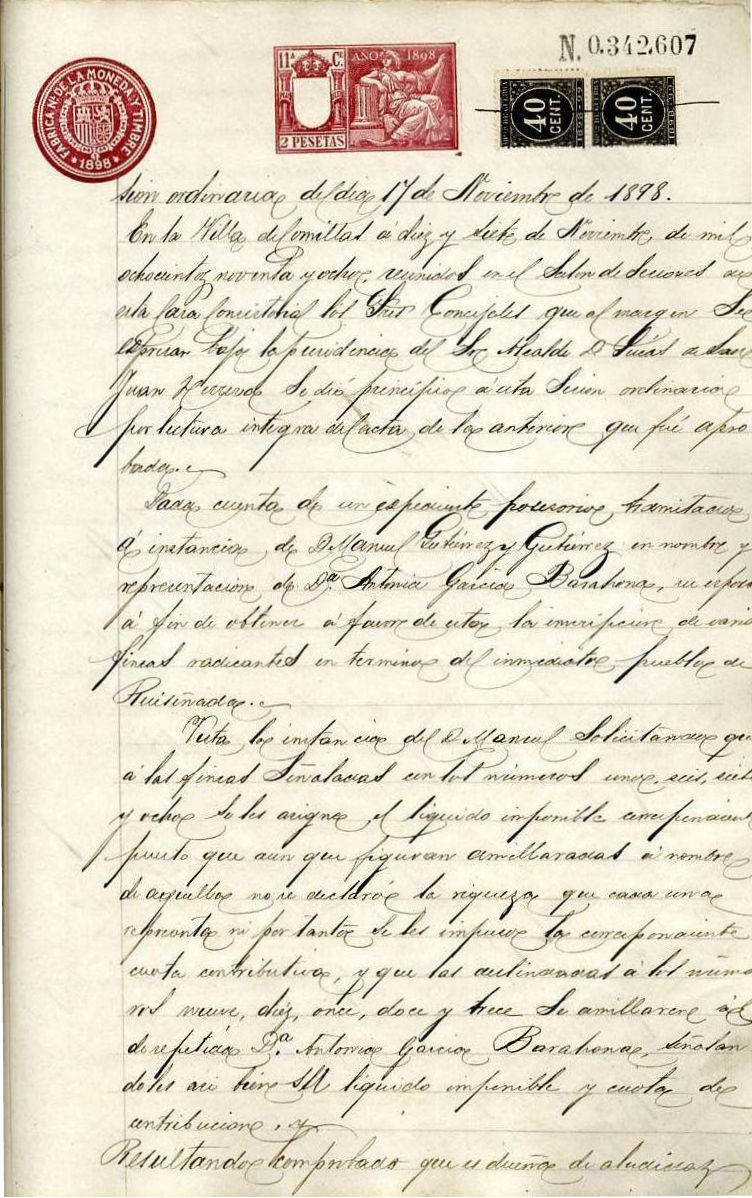 N. 0.342.607
FABRICA NAL DE LA MONEDA Y TIMBRE
1898
11ª Cª
AÑO 1898
2 PESETAS
40 CENT.
1898-99
40 CENT.
1898-99
sion ordinaria del dia 17 de Noviembre de 1898.
En la Villa de Comillas á diez y siete de Noviembre de mil
ochocientos noventa y ocho, reunidos en el Salon de Seciones de
esta Casa Consistorial los Sres Concejales que al margen se
espresan bajo la presidencia del Sr Alcalde D. Lucas de San
Juan Herrera se dió principio á esta Secion ordinaria
por lectura integra del acta de la anterior que fué apro
bada.
Dada cuenta de un espediente posesorio tramitado
á instancia de D Manuel Gutiérrez y Gutiérrez en nombre y
representacion de Dª. Antonia Garcia Barahona, su espos
á fin de obtener á favor de esta la inscripcion de varia
fincas radicantes en termino del inmediato pueblo de
Ruiseñada.
Vista la instancia del D Manuel Solicitando qu
á las fincas Señaladas con los números uno, seis, siete
y ocho se les asigne el líquido imponible correspondient
puesto que aun que figuran amillaradas á nombre
de aquella no se declaró la riqueza que cada una
representa ni por tanto se les impuso la correspondiente
cuota contributiva, y que las deslindadas á los núme
ros nueve, diez, once, doce y trece se amillaren á
de repetida Dª. Antonia Garcia Barahona, señalan
doles asi bien su líquido imponible y cuota de
contribucion, y
Resultando comprobado que es dueña de aludidas